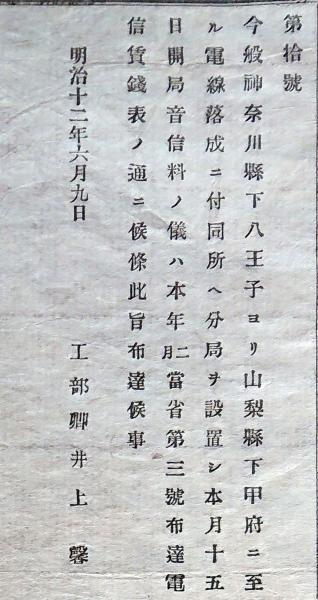 第拾號
今般神奈川縣下八王子ヨリ山梨縣下甲府ニ至
ル電線落成ニ付同所ヘ分局ヲ設置シ本月十五
日開局音信料ノ儀ハ本年二月當省第三號布達電
信賃錢表ノ通ニ候條此旨布達候事
明治十二年六月九日
工部卿井上馨